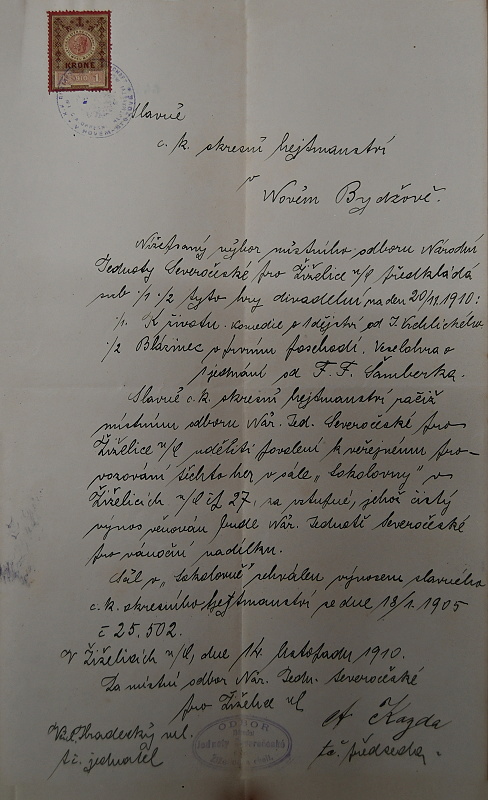 1
KRONE
Slavné
c. k. okresní hejtmanství
v
Novém Bydžově.
Nížepsaný výbor místního odboru Národní
Jednoty Severočeské pro Žiželice n/C předkládá
sub ·/1 ·/2 tyto hry divadelní na den 20/11 1910:
·/1. K životu. Komedie o 1 dějství od J. Vrchlického
·/2 Blázinec v prvním poschodí. Veselohra o
1 jednání od F. F. Šamberka.
Slavné c. k. okresní hejtmanství račiž
místnímu odboru Nár. Jed. Severočeské pro
Žiželice n/C uděliti povolení k veřejnému pro-
vozování těchto her v sále „Sokolovny" v
Žiželicích n/C čp 27, za vstupné, jehož čistý
výnos věnován bude Nár. Jednotě Severočeské
pro vánoční nadílku.
Sál v „Sokolovně" schválen výnosem slavného
c. k. okresního hejtmanství ze dne 18/1. 1905
č 25.502.
V Žiželicích n/C, dne 14. listopadu 1910.
Za místní odbor Nár. Jedn. Severočeské
pro Žiželice n/C
Hradecký ml.
t. č. jednatel
ODBOR
Jednoty Severočeské
A. Kazda
t. č. předseda.